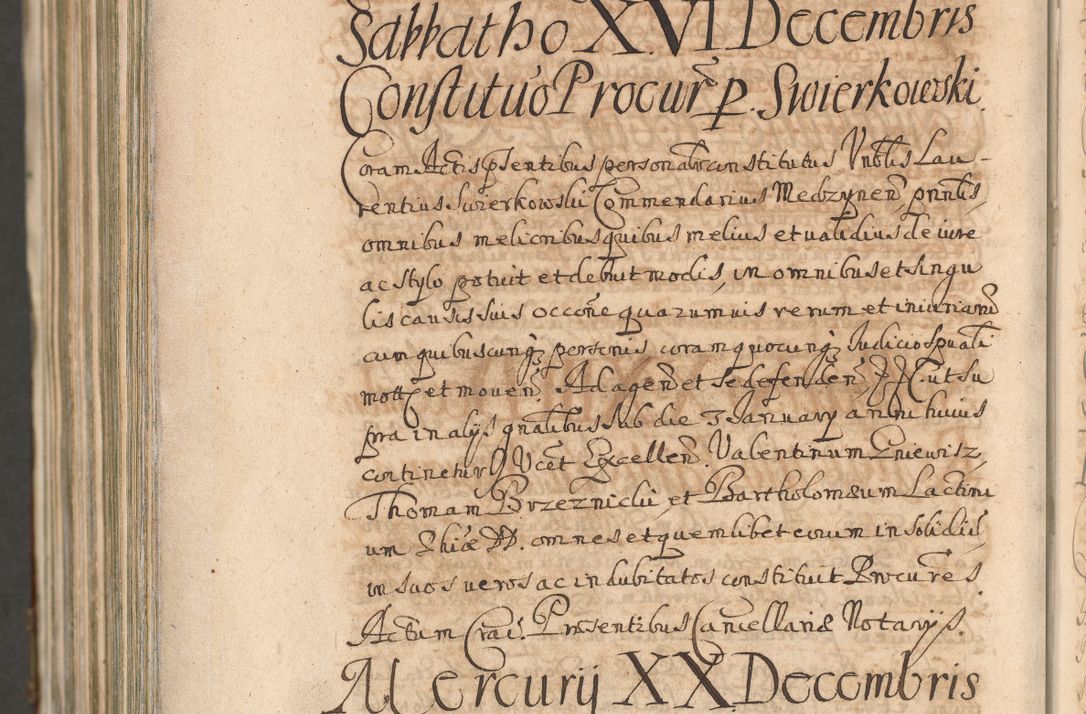 Sabbatho XVI Decembris
Constituo Procur̃ p. Swierkowski.
Coram Actis p̃sentibus personalr̃ constitutus Vnblis Lau-
rentius Swierkowski Commendarius Medzynen̄ pnnlis,
omnibus melioribus quibus melius et validius de iure
ac stylo potuit et debuit modis, in omnibus et singu
lis causis suis occōne quarumuis rerum et iniuriarū
cum quibuscunqȝ personis coram quocunqȝ Iudicio spuāli
mott et mouen̄. Ad agen̄ et se defenden̄ ut su
pra in alÿs gnālibus sub die 3 Ianuarÿ anni huius
continetur Vcēt Excellen̄. Valentinum Gniewisz,
Thomam Brzeznicki et Bartholomæum Lactini
um Phiæ DD. omnes et quemlibet eorum in solidū
in suos veros ac indubitatos constituit Procur̃es.
Actum Crac̄. Præsentibus Cancellariæ Notarÿs.
Mercurij XX Decembris